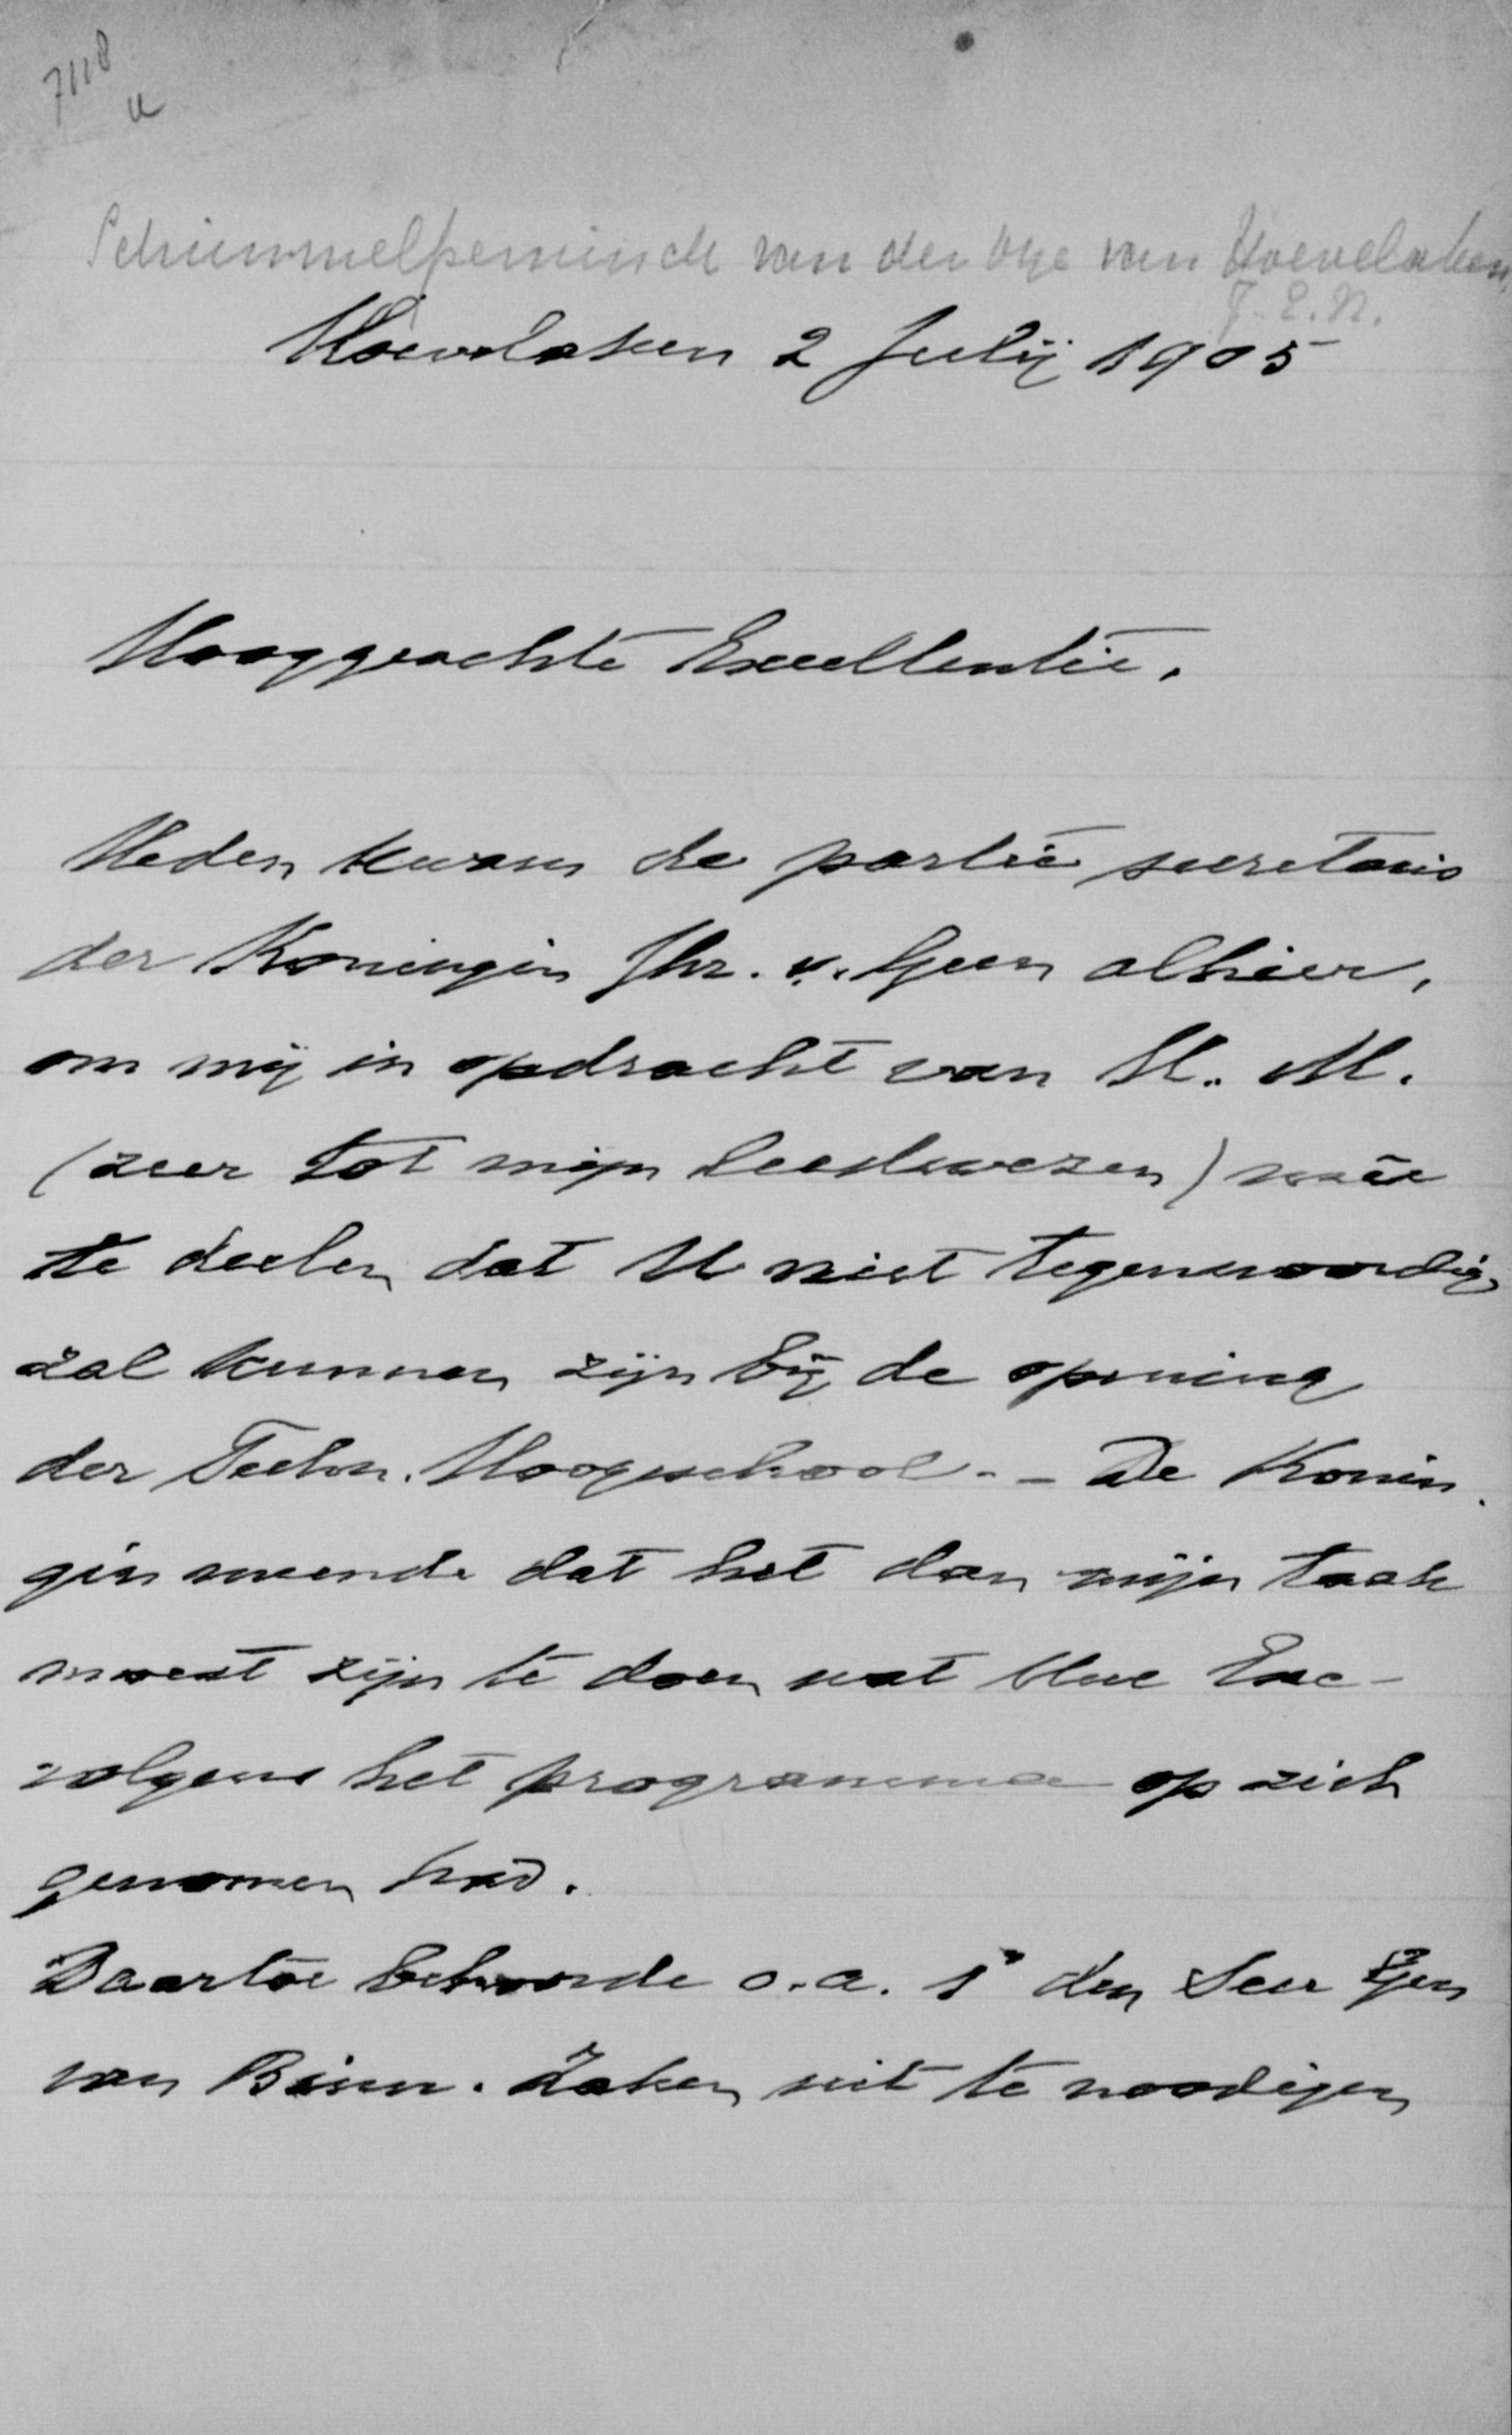 7118
u
Schimmelpenninck van der Oye van Hoevelaken,
J.E.N.
Hoevelaken 2 Julij 1905
Hooggeachte Excellentie.
Heden kwam de partic secretaris
der Koningin Jhr. v. Geen alhier,
om mij in opdracht van H. M.
(zeer tot mijn leedwezen) meê
te deelen dat U niet tegenwoordig
zal kunnen zijn bij de opening
der Techn. Hoogeschool. - De Konin
gin meende dat het dan mijn taak
moest zijn te doen wat Uwe Exc-
volgens het programma op zich
genomen had.
Daartoe behoorde o.a. 1° den Secr Gen
van Binn. Zaken uit te noodigen